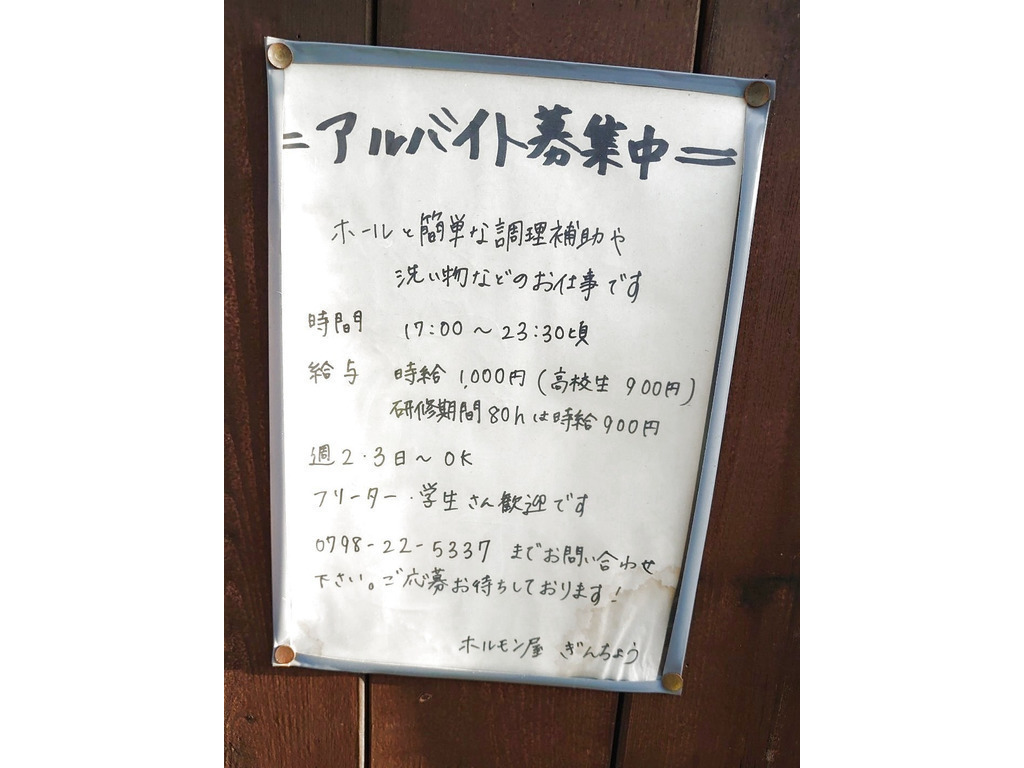 =アルバイト募集中=
ホールと簡単な調理補助や
洗い物などのお仕事です
時間 17:00～23:30頃
給与 時給1,000円(高校生 900円)
研修期間80hは時給900円
週2・3日～OK
フリーター・学生さん歓迎です
0798-22-5337 までお問い合わせ
下さい。ご応募お待ちしております!
ホルモン屋 ぎんちょう